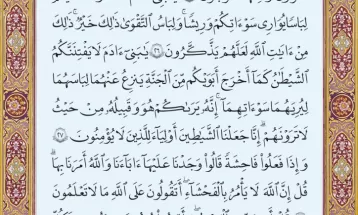 لِبَاسًا يُوَٰرِى سَوْءَٰتِكُمْ وَرِيشًا ۖ وَلِبَاسُ ٱلتَّقْوَىٰ ذَٰلِكَ خَيْرٌ ۚ ذَٰلِكَ
مِنْ ءَايَٰتِ ٱللَّهِ لَعَلَّهُمْ يَذَّكَّرُونَ ٢٦ يَٰبَنِىٓ ءَادَمَ لَا يَفْتِنَنَّكُمُ
ٱلشَّيْطَٰنُ كَمَآ أَخْرَجَ أَبَوَيْكُم مِّنَ ٱلْجَنَّةِ يَنزِعُ عَنْهُمَا لِبَاسَهُمَا
لِيُرِيَهُمَا سَوْءَٰتِهِمَآ ۗ إِنَّهُۥ يَرَىٰكُمْ هُوَ وَقَبِيلُهُۥ مِنْ حَيْثُ
لَا تَرَوْنَهُمْ ۗ إِنَّا جَعَلْنَا ٱلشَّيَٰطِينَ أَوْلِيَآءَ لِلَّذِينَ لَا يُؤْمِنُونَ ٢٧
وَإِذَا فَعَلُوا۟ فَٰحِشَةً قَالُوا۟ وَجَدْنَا عَلَيْهَآ ءَابَآءَنَا وَٱللَّهُ أَمَرَنَا بِهَا ۗ
قُلْ إِنَّ ٱللَّهَ لَا يَأْمُرُ بِٱلْفَحْشَآءِ ۖ أَتَقُولُونَ عَلَى ٱللَّهِ مَا لَا تَعْلَمُونَ